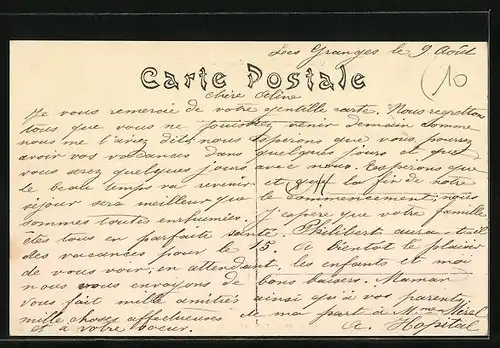 Les Granges le 9 Août
(10
Carte Postale
Chère Céline
Je vous remercie de votre gentille carte. Nous regrettons
tous que vous ne pouviez venir demain comme
nous me l'aviez dit, nous espérons que vous pourrez
avoir vos vacances dans quelques jours et que
vous serez quelques jours avec nous. Espérons que
le beau temps va revenir et que la fin de notre
séjour sera meilleur que le commencement, nous
sommes toute enrhumée. J'espère que votre famille
êtes tous en parfaite santé. Philibert aura-t-il
des vacances pour le 15. A bientôt le plaisir
de vous voir, en attendant, les enfants et moi
nous vous envoyons de bons baisers. Maman
vous fait mille amitiés ainsi qu'à vos parents,
mille choses affectueuses de ma part à Mme
et à votre soeur. A. Hopital